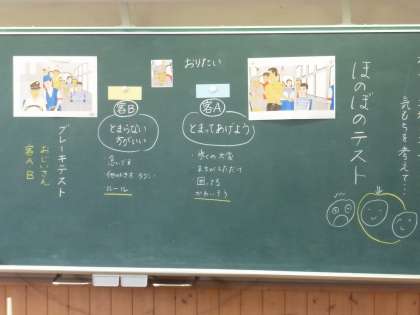 気もちを考えて…
ほのぼのテスト
おりたい
客A
とまってあげよう
歩くの大変
まちがえただけ
困ってる
かわいそう
客B
とまらない
方がいい
急いでる
ルール
ブレーキテスト
おじいさん
客A B